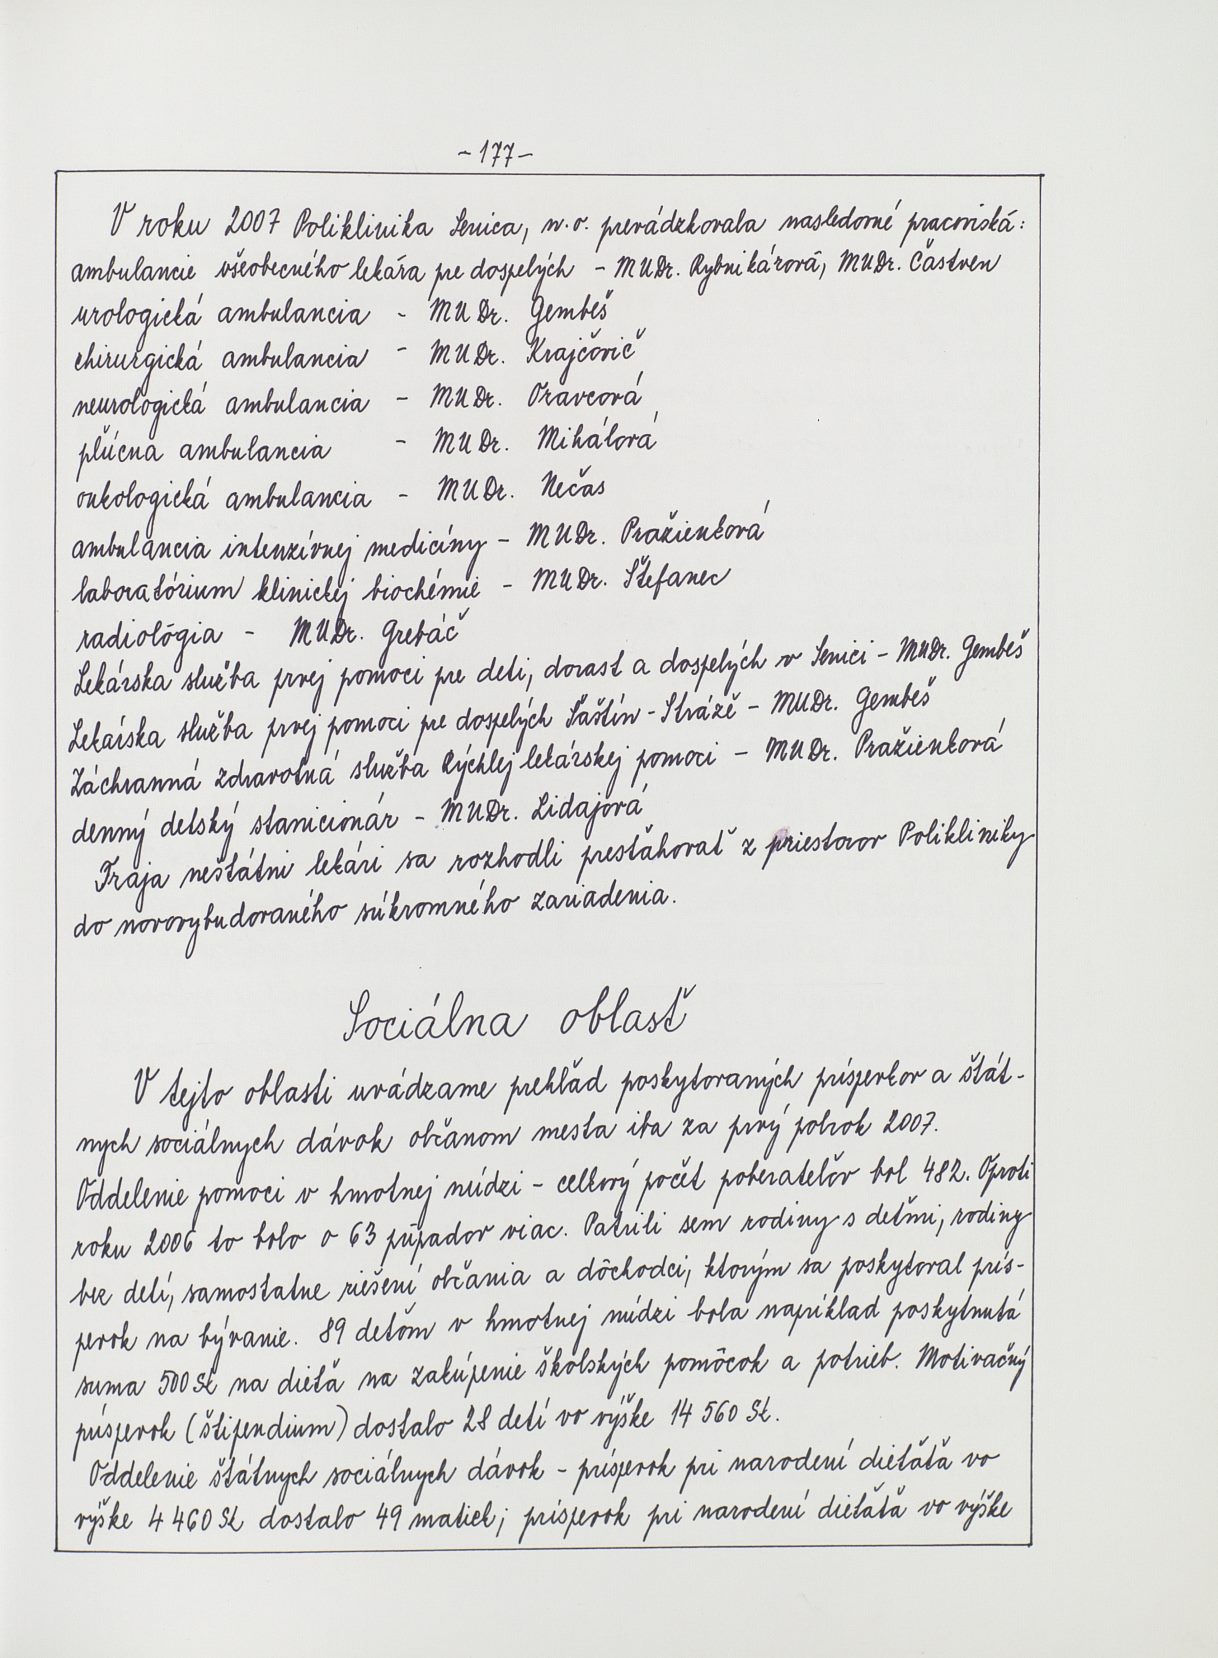 - 177 -
V roku 2007 Poliklinika Senica, n.o. prevádzkovala nasledovné pracoviská:
ambulancie všeobecného lekára pre dospelých - MUDr. Rybnikárová, MUDr. Častven
urologická ambulancia - MUDr. Gembeš
chirurgická ambulancia - MUDr. Krajčovič
neurologická ambulancia - MUDr. Oravcová
pľúcna ambulancia - MUDr. Mihálová
onkologická ambulancia - MUDr. Nečas
ambulancia intenzívnej medicíny - MUDr. Pražienková
laboratórium klinickej biochémie - MUDr. Štefanec
radiológia - MUDr. Grebáč
Lekárska služba prvej pomoci pre deti, dorast a dospelých v Senici - MUDr. Gembeš
Lekárska služba prvej pomoci pre dospelých Šaštín - Stráže - MUDr. Gembeš
Záchranná zdravotná služba Rýchlej lekárskej pomoci - MUDr. Pražienková
denný detský stanicionár - MUDr. Lidajová
Traja neštátni lekári sa rozhodli presťahovať z priestorov Polikliniky
do novovybudovaného súkromného zariadenia.
Sociálna oblasť
V tejto oblasti uvádzame prehľad poskytovaných príspevkov a štát-
nych sociálnych dávok občanom mesta iba za prvý polrok 2007.
Oddelenie pomoci v hmotnej núdzi - celkový počet poberateľov bol 482. Oproti
roku 2006 to bolo o 63 prípadov viac. Patrili sem rodiny s deťmi, rodiny
bez detí, samostatne riešení občania a dôchodci, ktorým sa poskytoval prís-
pevok na bývanie. 89 deťom v hmotnej núdzi bola napríklad poskytnutá
suma 500 Sk na dieťa na zakúpenie školských pomôcok a potrieb. Motivačný
príspevok (štipendium) dostalo 28 detí vo výške 14 560 Sk.
Oddelenie štátnych sociálnych dávok - príspevok pri narodení dieťaťa vo
výške 4 460 Sk dostalo 49 matiek; príspevok pri narodení dieťaťa vo výške